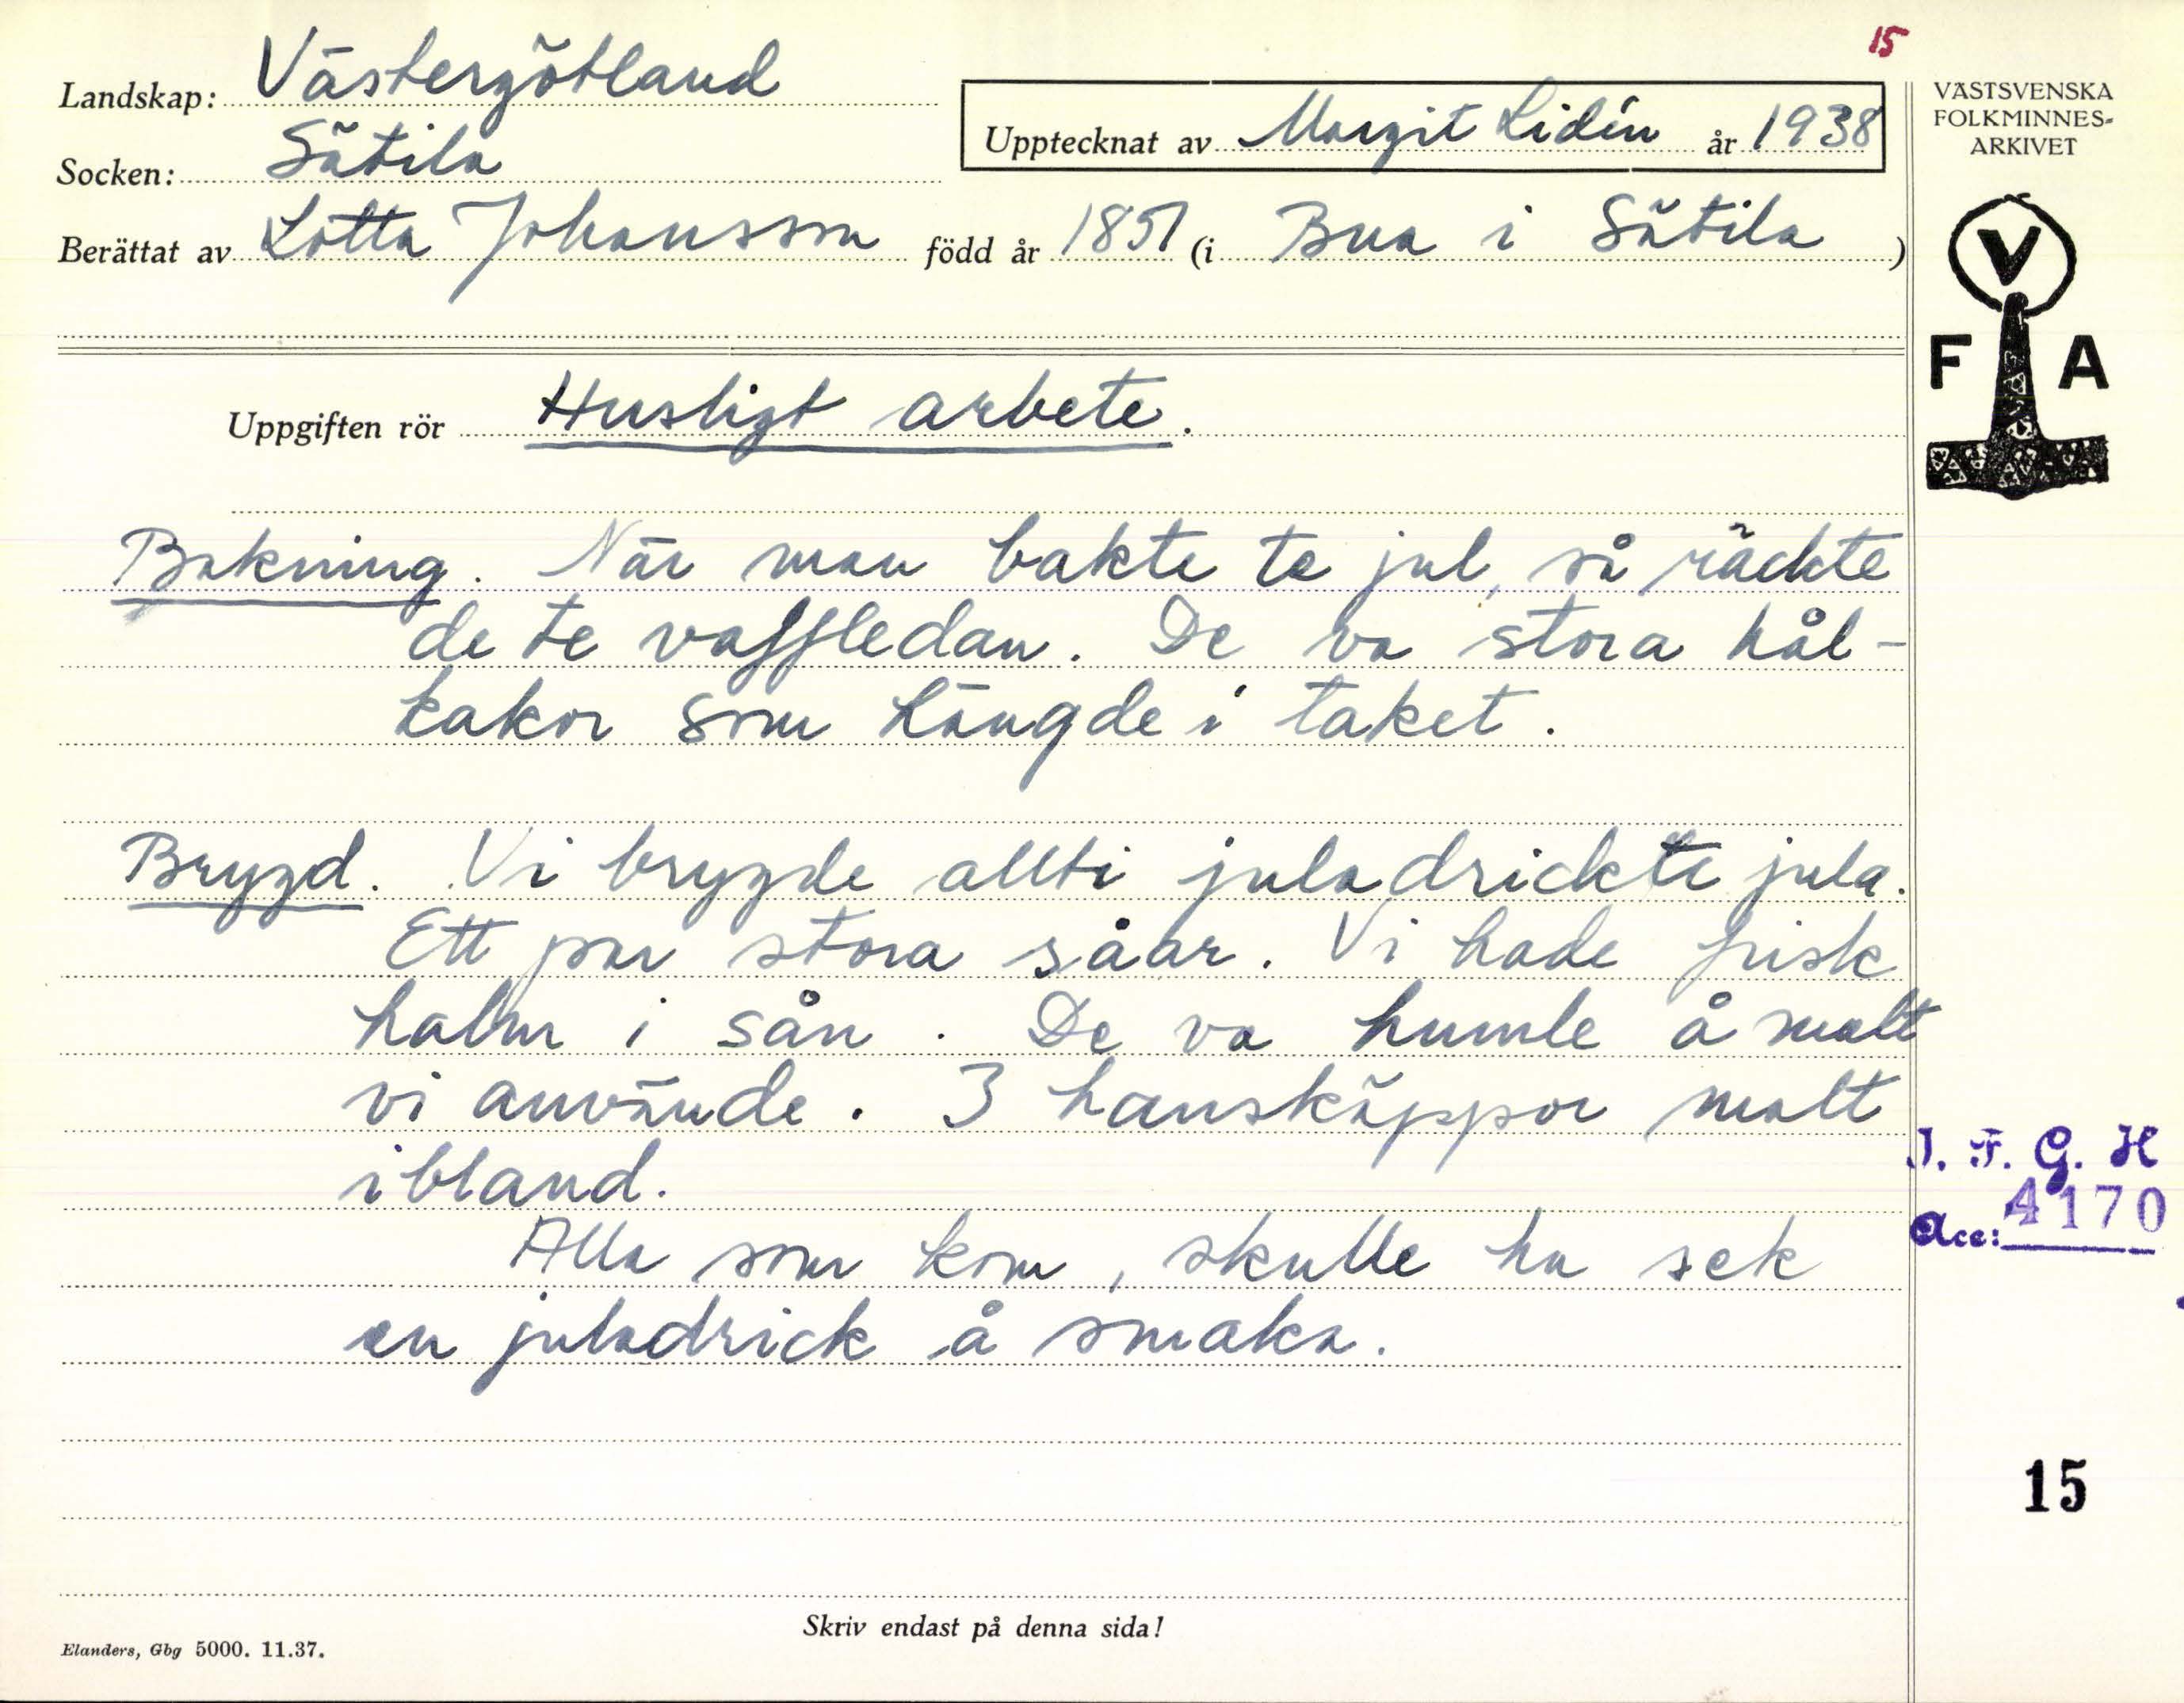 15
Landskap: Västergötland
Socken: Sätila
Upptecknat av Margit Lidén år 1938
Berättat av Lotta Johansson född år 1857 (i Bua i Sätila )
VÄSTSVENSKA
FOLKMINNES-
ARKIVET
V
F A
Uppgiften rör Husligt arbete.
Bakning. När man bakte te jul, så räckte
de te vaffledan. De va stora hål-
kakor som hängde i taket.
Brygd. Vi brygde allti juladrickte jula.
Ett par stora såar. Vi hade frisk
halm i sån. De va humle å malt
vi använde. 3 hanskäppor malt
ibland.
Alla som kom, skulle ha sek
en juladrick å smaka.
I. F. G. H
Acc: 4170
15
Skriv endast på denna sida!
Elanders, Gbg 5000. 11.37.